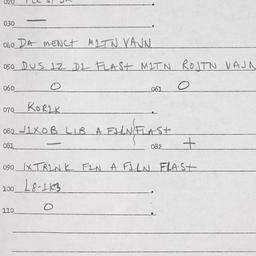 030 —
040 DA MENCT MITN VAJN
050 DUS IZ DI FLAST MITN ROJTN VAJN
060 O 061 O
070 KORIK
080 JIXOB LIB A FILN/FLAST
081 — 082 +
090 IXTRINK FIN A FILN FLAST
100 L8-IK3
110 O